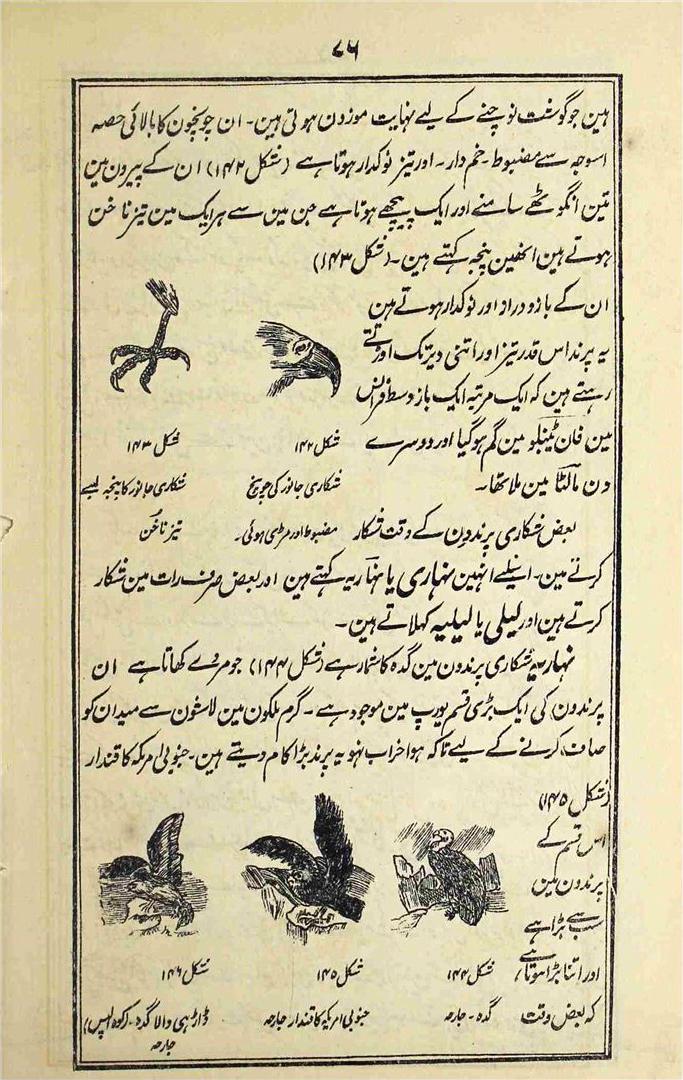 ۸۶
ہین جو گوشت نوچنے کے لیے نہایت موزون ہوتی ہین۔ ان چونچون کا بالائی حصہ
اسوجہ سے مضبوط۔ خم دار۔ اور تیز نوکدار ہوتا ہے (شکل ۱۴۲) ان کے پیرون مین
تین انگوٹھے سامنے اور ایک پیچھے ہوتا ہے جن مین سے ہر ایک مین تیز ناخن
ہوتے ہین انھین پنجہ کہتے ہین۔ (شکل ۱۴۳)
ان کے بازو دراز اور نوکدار ہوتے ہین
یہ پرند اس قدر تیز اور اتنی دیر تک اوڑتے
رہتے ہین کہ ایک مرتبہ ایک باز وسط فرانس
مین فان ٹینبلو مین گم ہو گیا اور دوسرے
دن مالٹا مین ملا تھا۔
شکل ۱۴۲
شکاری جانور کی چونچ
مضبوط اور مڑی ہوئی۔
شکل ۱۴۳
شکاری جانور کا پنجہ لمبے
تیز ناخن
بعض شکاری پرند دن کے وقت شکار
کرتے ہین۔ اسیلئے انہین نہاری یا نہاریہ کہتے ہین اور بعض صرف رات مین شکار
کرتے ہین اور لیلی یا لیلیہ کہلاتے ہین۔
نہاریہ شکاری پرندون مین گدہ کا شمار ہے (شکل ۱۴۴) جو مردے کھاتا ہے ان
پرندون کی ایک بڑی قسم یورپ مین موجود ہے۔ گرم ملکون مین لاشون سے میدان کو
صاف کرنے کے لیے تاکہ ہوا خراب نہو یہ پرند بڑا کام دیتے ہین۔ جنوبی امریکہ کا قندار
(شکل ۱۴۵)
اس قسم کے
پرندون مین
سب سے بڑا ہے
اور اتنا بڑا ہوتا ہے
کہ بعض وقت
شکل ۱۴۴
گدہ۔ جارحہ
شکل ۱۴۵
جنوبی امریکہ کا قندار جارحہ
شکل ۱۴۶
ڈاڑہی والا گدہ۔ (کوہ الپس)
جارحہ